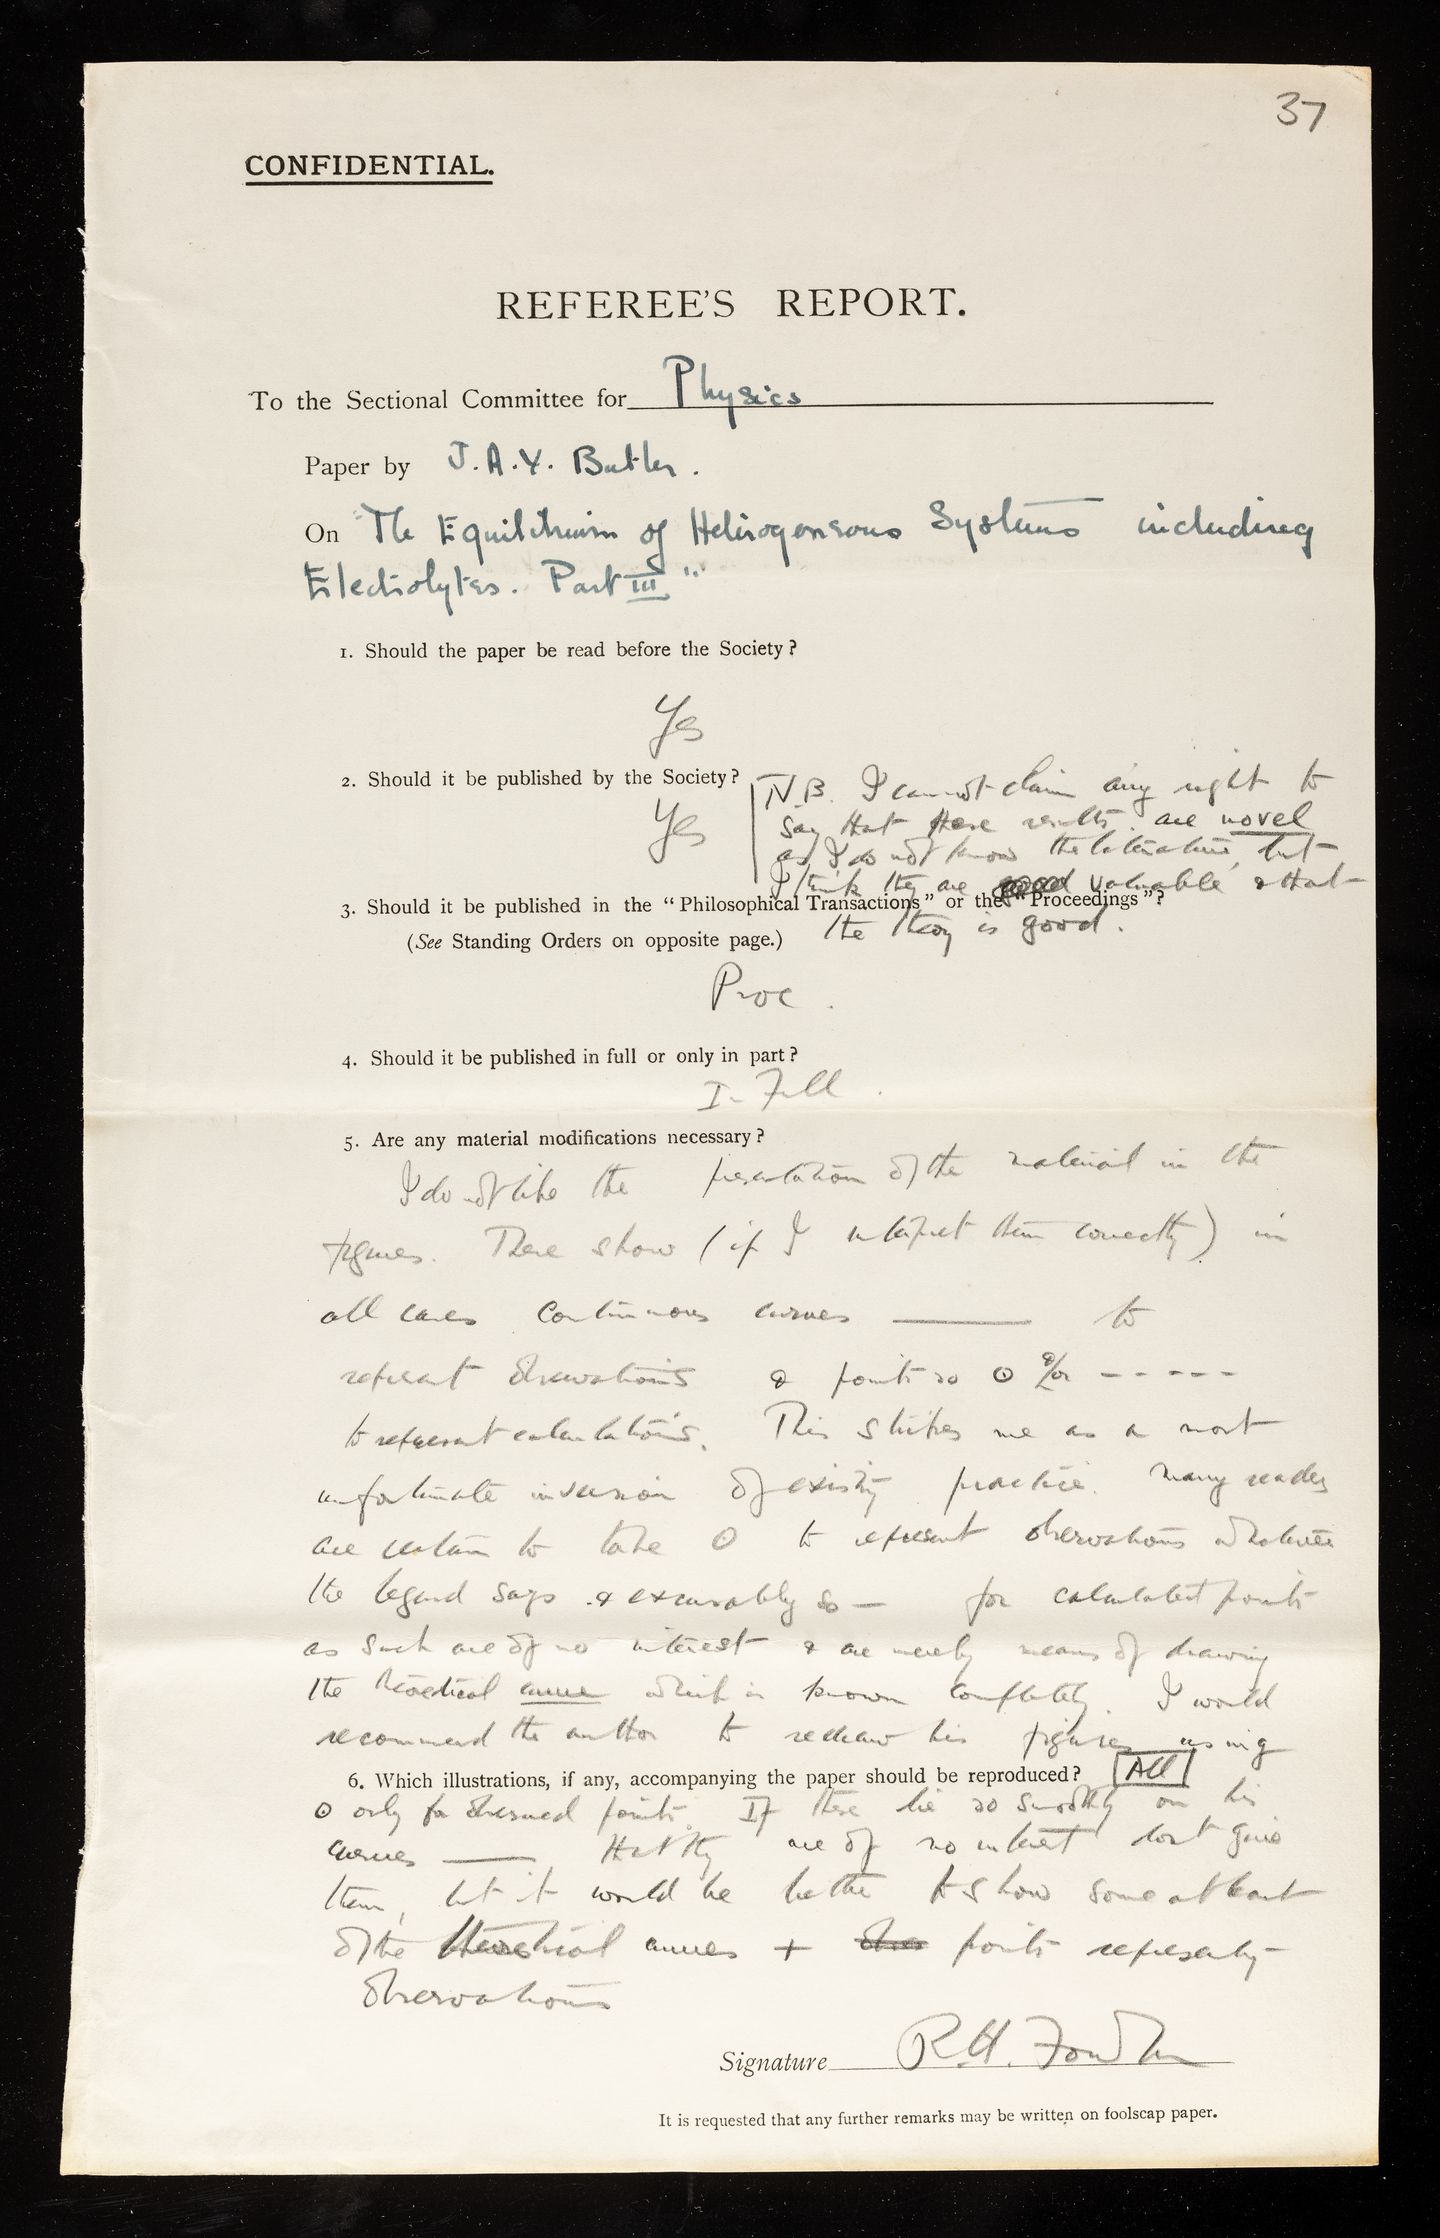 37
CONFIDENTIAL.
REFEREE'S REPORT.
To the Sectional Committee for Physics
Paper by J.A.V. Butler.
On "The Equilibrium of Heterogeneous Systems including
Electrolytes. Part III"
1. Should the paper be read before the Society?
Yes
2. Should it be published by the Society?
Yes
N.B. I cannot claim any right to
say that these results are novel
as I do not know the literature, but
I think they are valuable & that
the theory is good.
3. Should it be published in the "Philosophical Transactions" or the "Proceedings"?
(See Standing Orders on opposite page.)
Proc.
4. Should it be published in full or only in part?
In Full.
5. Are any material modifications necessary?
I do not like the presentation of the material in the
figures. These show (if I interpret them correctly) in
all cases continuous curves ——— to
represent observations & points so ⊙ &/or - - - - -
to represent calculations. This strikes me as a most
unfortunate inversion of existing practice. Many readers
are certain to take ⊙ to represent observations whatever
the legend says & excusably so — for calculated points
as such are of no interest & are merely means of drawing
the theoretical curve which is known completely. I would
recommend the author to redraw his figures using
6. Which illustrations, if any, accompanying the paper should be reproduced? All
⊙ only for observed points. If these lie so smoothly on his
curves ——— that they are of no interest don't give
them, but it would be better to show some at least
of the theoretical curves + points representing
observations
Signature R.H. Fowler
It is requested that any further remarks may be written on foolscap paper.